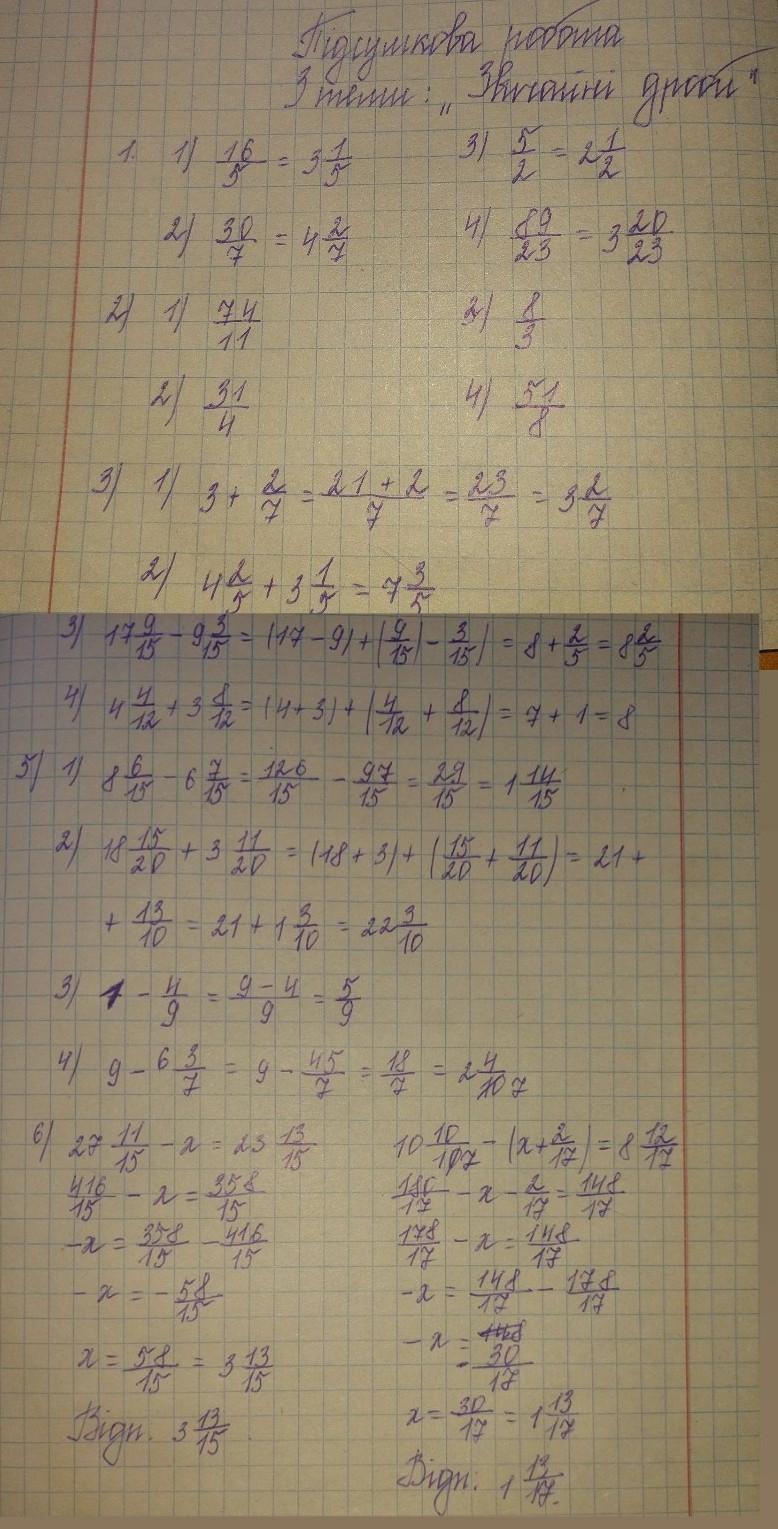 Підсумкова робота
З теми: „Звичайні дроби"
1. 1) 16/5 = 3 1/5 3) 5/2 = 2 1/2
2) 30/7 = 4 2/7 4) 89/23 = 3 20/23
2) 1) 74/11 3) 8/3
2) 31/4 4) 51/8
3) 1) 3 + 2/7 = (21 + 2)/7 = 23/7 = 3 2/7
2) 4 2/5 + 3 1/5 = 7 3/5
3) 17 9/15 - 9 3/15 = (17 - 9) + (9/15 - 3/15) = 8 + 2/5 = 8 2/5
4) 4 4/12 + 3 8/12 = (4+3) + (4/12 + 8/12) = 7 + 1 = 8
5) 1) 8 6/15 - 6 7/15 = 126/15 - 97/15 = 29/15 = 1 14/15
2) 18 15/20 + 3 11/20 = (18 + 3) + (15/20 + 11/20) = 21 +
+ 13/10 = 21 + 1 3/10 = 22 3/10
3) 1 - 4/9 = (9 - 4)/9 = 5/9
4) 9 - 6 3/7 = 9 - 45/7 = 18/7 = 2 4/7
6) 27 11/15 - x = 23 13/15 10 10/17 - (x + 2/17) = 8 12/17
416/15 - x = 358/15 180/17 - x - 2/17 = 148/17
-x = 358/15 - 416/15 178/17 - x = 148/17
-x = - 58/15 -x = 148/17 - 178/17
x = 58/15 = 3 13/15 -x = - 30/17
Відп. 3 13/15 x = 30/17 = 1 13/17
Відп. 1 13/17.